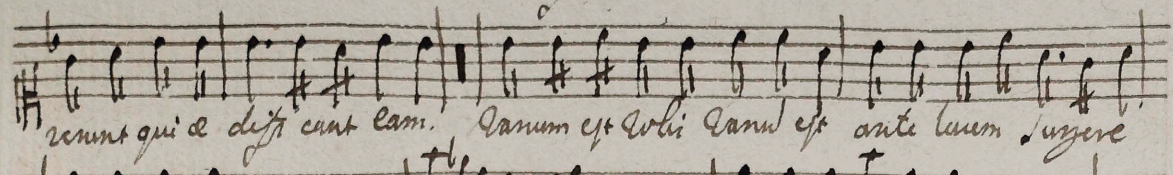 rerunt qui ædifi cant eam. Vanum est Vobis Vanū est ante lucem surgere